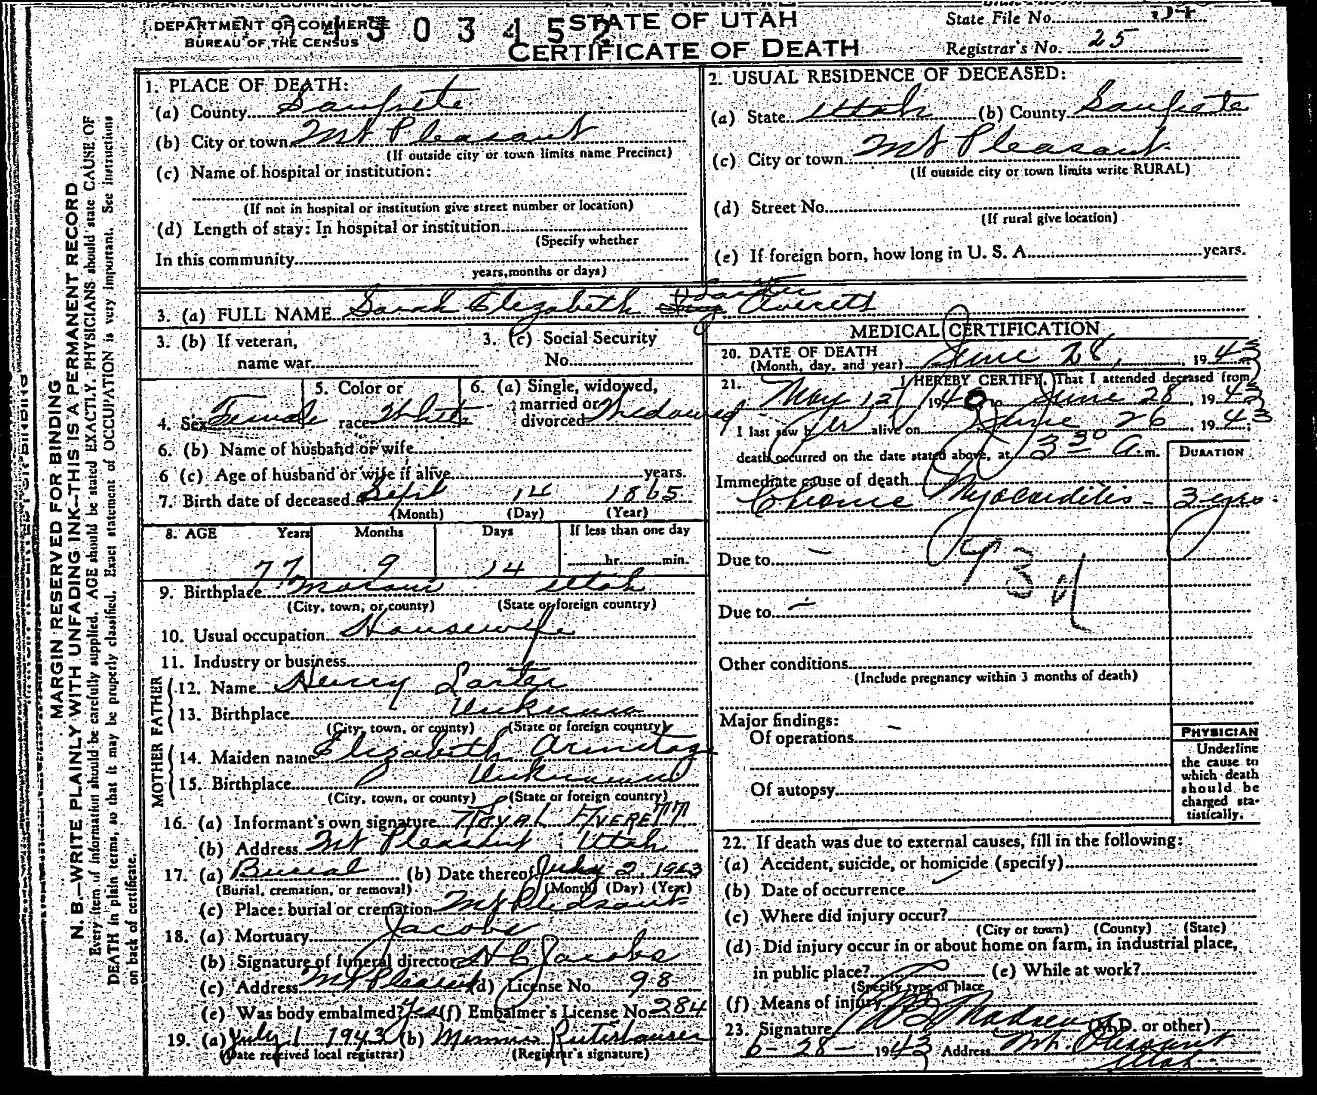 DEPARTMENT OF COMMERCE
BUREAU OF THE CENSUS
3 0 3 4 5 2
STATE OF UTAH
CERTIFICATE OF DEATH
State File No.
Registrar's No. 25
MARGIN RESERVED FOR BINDING
N. B.—WRITE PLAINLY WITH UNFADING INK—THIS IS A PERMANENT RECORD
Every item of information should be carefully supplied. AGE should be stated EXACTLY. PHYSICIANS should state CAUSE OF
DEATH in plain terms, so that it may be properly classified. Exact statement of OCCUPATION is very important. See instructions
on back of certificate.
1. PLACE OF DEATH:
(a) County Sanpete
(b) City or town Mt Pleasant
(If outside city or town limits name Precinct)
(c) Name of hospital or institution:
(If not in hospital or institution give street number or location)
(d) Length of stay: In hospital or institution
(Specify whether
In this community
years, months or days)
2. USUAL RESIDENCE OF DECEASED:
(a) State Utah (b) County Sanpete
(c) City or town Mt Pleasant
(If outside city or town limits write RURAL)
(d) Street No.
(If rural give location)
(e) If foreign born, how long in U. S. A. years.
3. (a) FULL NAME Sarah Elizabeth Larter Averett
3. (b) If veteran,
name war
3. (c) Social Security
No.
4. Sex Female
5. Color or
race White
6. (a) Single, widowed,
married or
divorced Widowed
6. (b) Name of husband or wife
6 (c) Age of husband or wife if alive years.
7. Birth date of deceased Sept 14 1865
(Month) (Day) (Year)
8. AGE Years Months Days If less than one day
77 9 14 hr. min.
9. Birthplace Moroni Utah
(City, town, or county) (State or foreign country)
10. Usual occupation Housewife
11. Industry or business
FATHER
12. Name Henry Larter
13. Birthplace Unknown
(City, town, or county) (State or foreign country)
MOTHER
14. Maiden name Elizabeth Armitage
15. Birthplace Unknown
(City, town, or county) (State or foreign country)
16. (a) Informant's own signature Royal Averett
(b) Address Mt Pleasant Utah
17. (a) Burial (b) Date thereof July 2 1943
(Burial, cremation, or removal) (Month) (Day) (Year)
(c) Place: burial or cremation Mt Pleasant
18. (a) Mortuary Jacobs
(b) Signature of funeral director H C Jacobs
(c) Address Mt Pleasant (d) License No. 98
(e) Was body embalmed? Yes (f) Embalmer's License No. 284
19. (a) July 1 1943 (b) Rutishauser
(Date received local registrar) (Registrar's signature)
MEDICAL CERTIFICATION
20. DATE OF DEATH
(Month, day, and year) June 28, 1943
21. I HEREBY CERTIFY, That I attended deceased from
May 12, 1940 to June 28, 1943
I last saw her alive on June 26, 1943
death occurred on the date stated above, at 3 30 A.m.
DURATION
Immediate cause of death
Chronic Myocarditis - 3 yrs.
Due to —
93d
Due to —
Other conditions
(Include pregnancy within 3 months of death)
Major findings:
Of operations —
Of autopsy
PHYSICIAN
Underline
the cause to
which death
should be
charged sta-
tistically.
22. If death was due to external causes, fill in the following:
(a) Accident, suicide, or homicide (specify)
(b) Date of occurrence
(c) Where did injury occur?
(City or town) (County) (State)
(d) Did injury occur in or about home on farm, in industrial place,
in public place? (e) While at work?
(Specify type of place
(f) Means of injury
23. Signature Madsen (M.D. or other)
6-28-1943 Address Mt. Pleasant
Utah